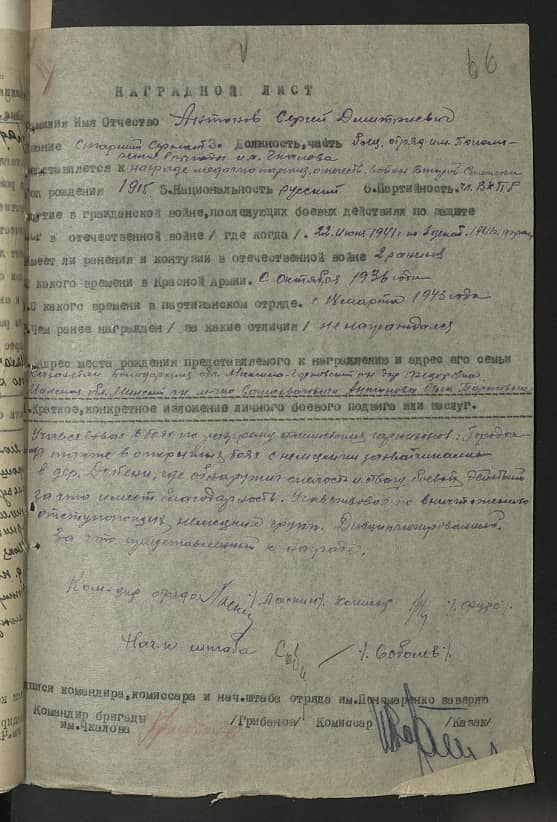 66
НАГРАДНОЙ ЛИСТ
Фамилия Имя Отчество Антонов Сергей Дмитриевич
Звание Старший Сержант 3. Должность, часть боец отряд им. Понома-
ренко бригады им. Чкалова
Представляется к награде медаль партиз. отечеств. войны Второй Степени
Год рождения 1915 5. Национальность русский 6. Партийность. чл. ВКПб
участие в гражданской войне, последующих боевых действиях по защите
в отечественной войне / где когда /. 22 июня 1941 г. по 1941 г.
Имеет ли ранения и контузии в отечественной войне 2 ранения
С какого времени в Красной Армии. С Октября 1936 года
С какого времени в партизанском отряде. с марта 1943 года
Чем ранее награжден / за какие отличия / не награждался
Адрес места рождения представляемого к награждению и адрес его семьи
обл. р-н дер.
Минская обл. Минский р-н Антонова Ольга
Краткое, конкретное изложение личного боевого подвига или заслуг.
Участвовал в боях по разгрому гарнизонов: Городок
а также в открытых боях с немецкими захватчиками
в дер. где обнаружил смелость и отвагу боевых действий
за что имеет благодарность. Участвовал по уничтожению
отступающих немецких групп. Дисциплинированный.
За что представленный к награде.
Командир отряда /Ласкин/ Комиссар
Нач-к штаба /Соболев/
подписи командира, комиссара и нач. штаба отряда им. Пономаренко заверяю
Командир бригады /Грибанов/ Комиссар /Казак/
им. Чкалова